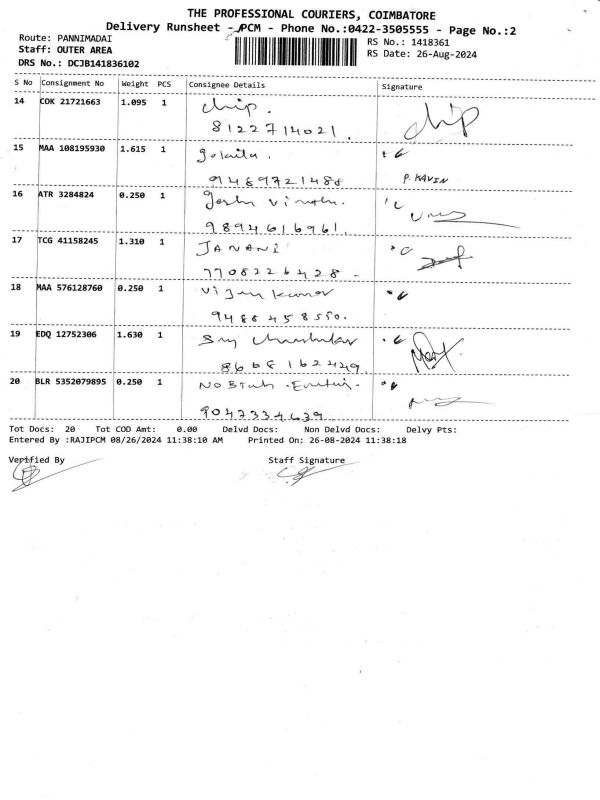 THE PROFESSIONAL COURIERS, COIMBATORE
Delivery Runsheet - PCM - Phone No.:0422-3505555 - Page No.:2
Route: PANNIMADAI
RS No.: 1418361
Staff: OUTER AREA
RS Date: 26-Aug-2024
DRS No.: DCJB141836102
S No Consignment No Weight PCS Consignee Details Signature
14 COK 21721663 1.095 1 chip. chip
8122714021.
15 MAA 108195930 1.615 1
9489721488 P. KAVIN
16 ATR 3284824 0.250 1
9894616961.
17 TCG 41158245 1.310 1 JANANI
7708226428 -
18 MAA 576128760 0.250 1 Vijay kumar
9488458550.
19 EDQ 12752306 1.630 1
8668162449.
20 BLR 5352079895 0.250 1
9047334639
Tot Docs: 20 Tot COD Amt: 0.00 Delvd Docs: Non Delvd Docs: Delvy Pts:
Entered By :RAJIPCM 08/26/2024 11:38:10 AM Printed On: 26-08-2024 11:38:18
Verified By Staff Signature